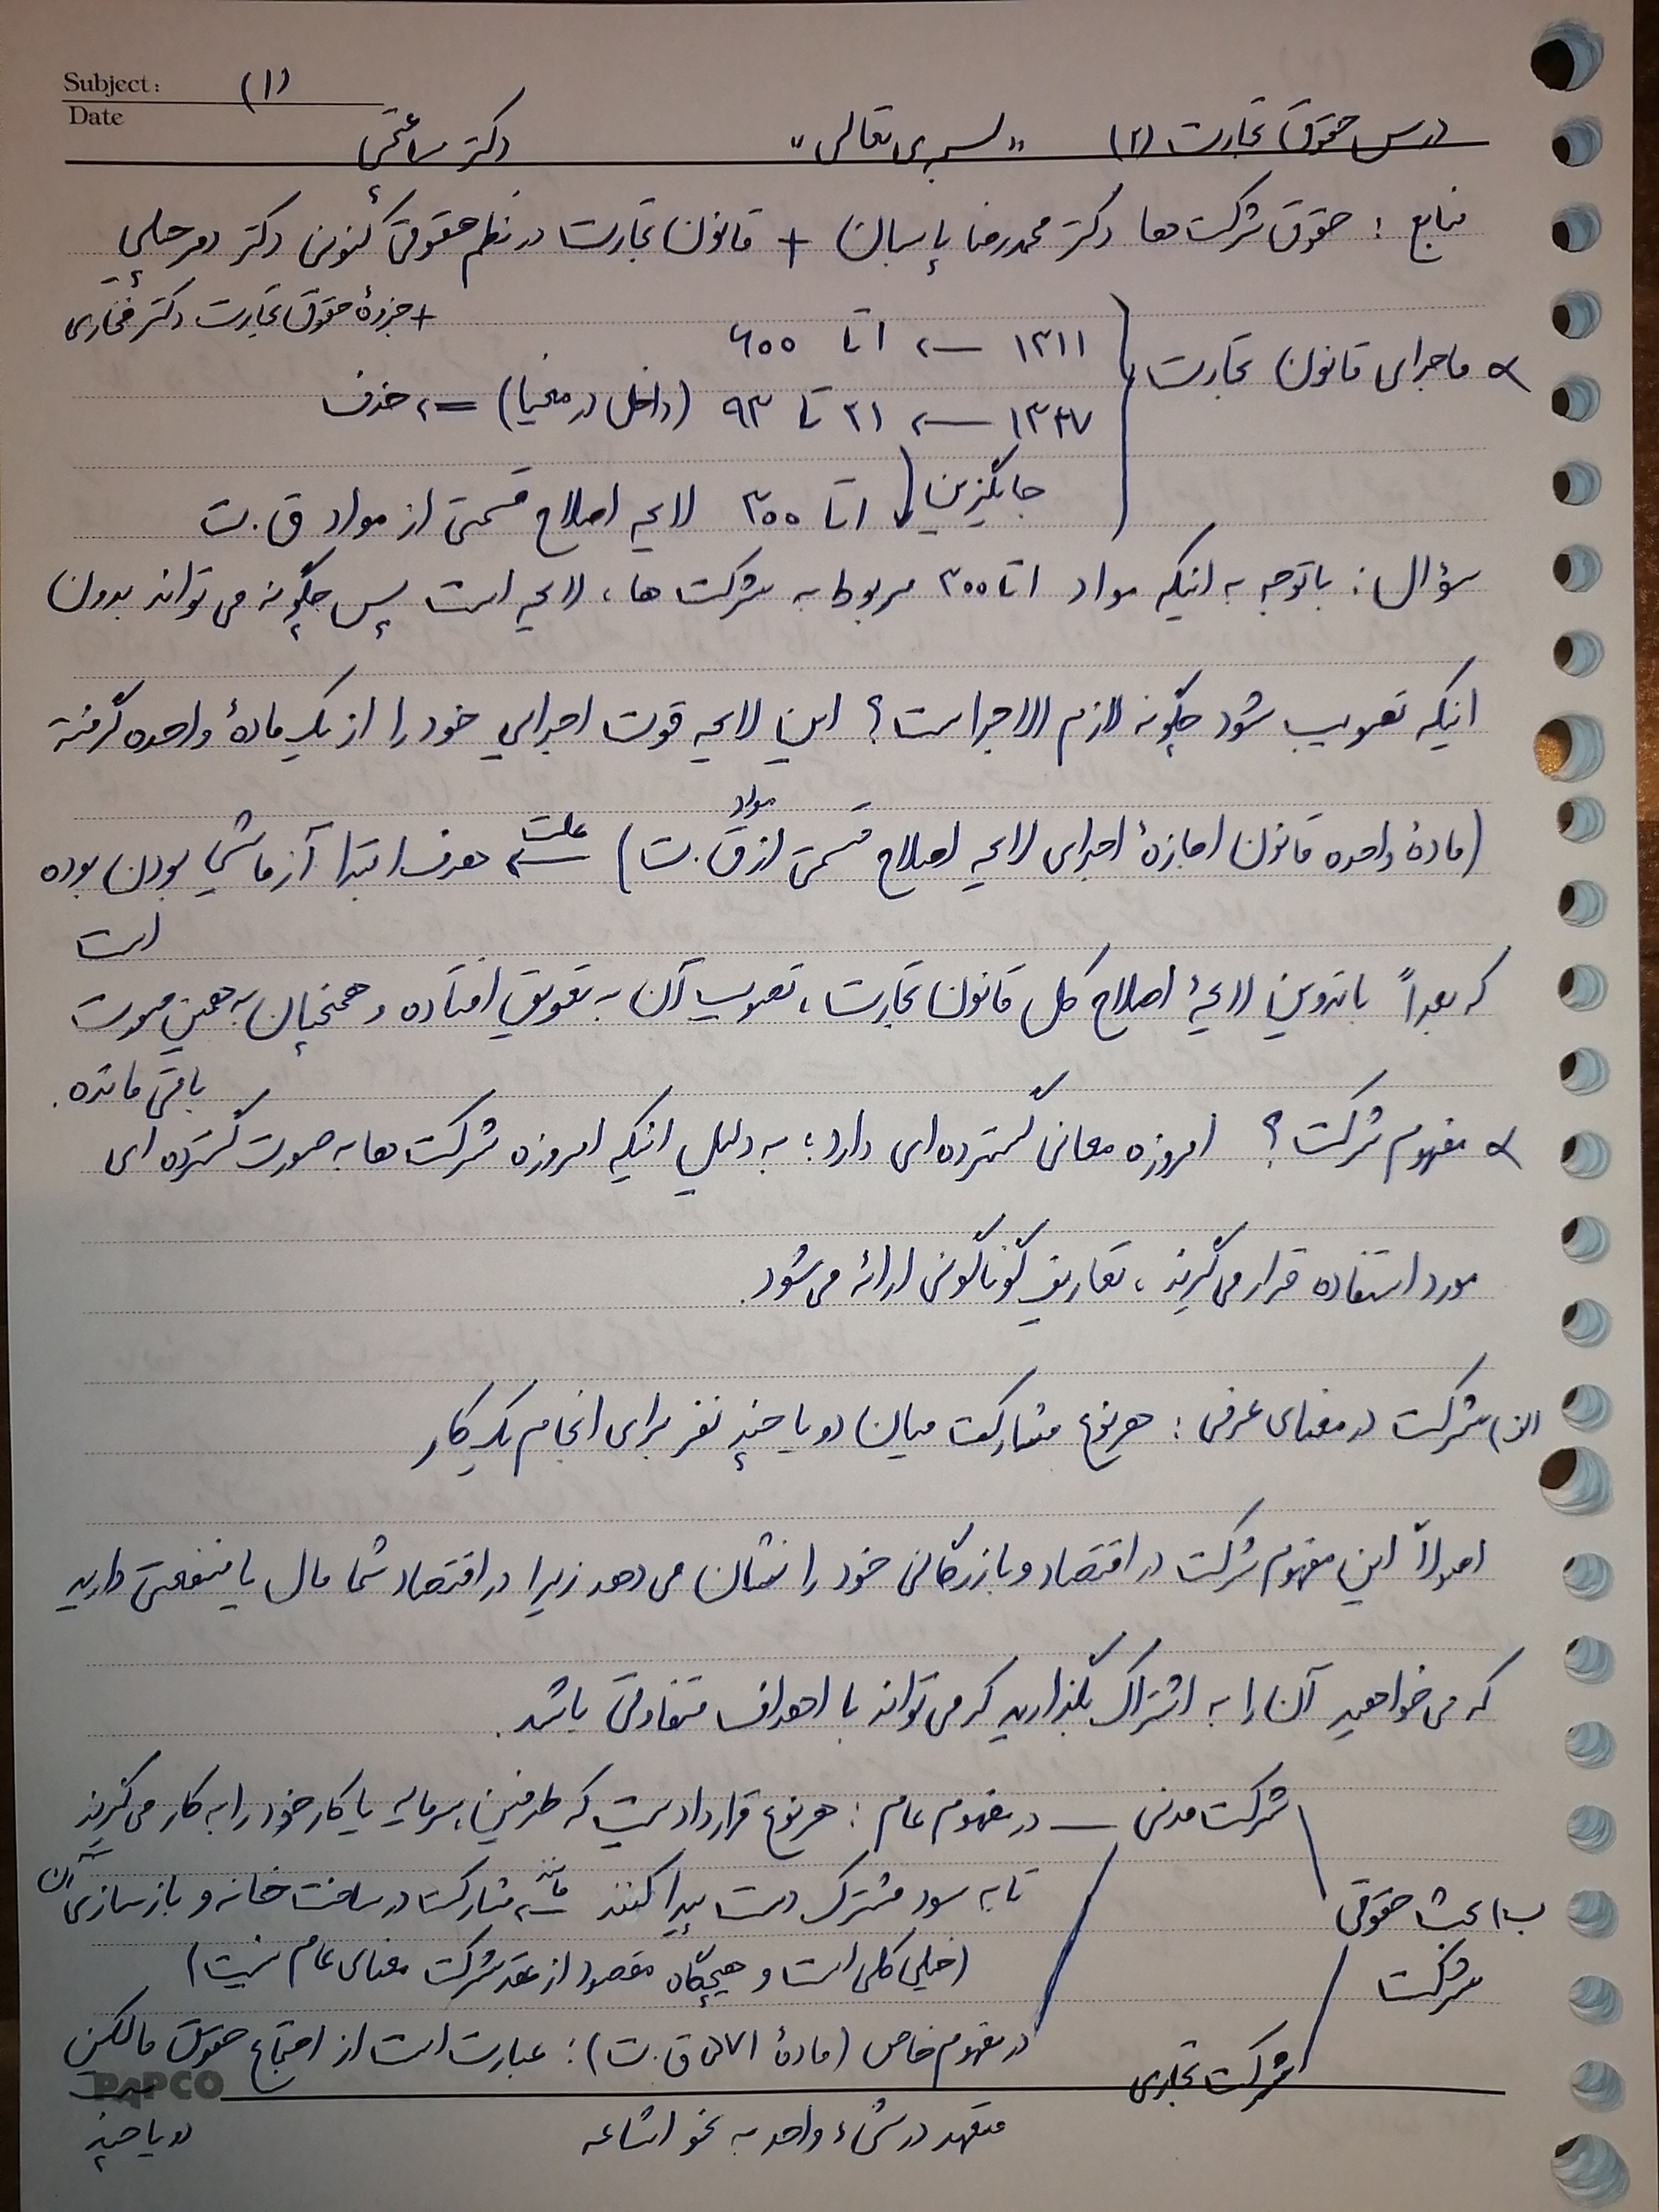 Subject:
(۱)
Date
درس حقوق تجارت (۲) «بسمه‌ی تعالی» دکتر ساعتچی
منابع : حقوق شرکت‌ها دکتر محمدرضا پاسبان + قانون تجارت در نظم حقوقی کنونی دکتر دمرچیلی
+ جزوهٔ حقوق تجارت دکتر فخاری
* ماجرای قانون تجارت
۱۳۱۱ ← ۱ تا ۶۰۰
۱۳۴۷ ← ۲۱ تا ۹۳ (داخل در مغیا) ⇐ حذف
جایگزین ۱ تا ۳۰۰ لایحه اصلاح قسمتی از مواد ق.ت
سؤال : با توجه به اینکه مواد ۱ تا ۳۰۰ مربوط به شرکت ها ، لایحه است پس چگونه می تواند بدون
اینکه تصویب شود چگونه لازم الاجراست؟ این لایحه قوت اجرایی خود را از یک مادهٔ واحده گرفته
(مادهٔ واحده قانون اجازهٔ اجرای لایحه اصلاح قسمتی از مواد ق.ت) علت ← هدف ابتدا آزمایشی بودن بوده
است
که بعداً با تدوین لایحهٔ اصلاح کل قانون تجارت ، تصویب آن به تعویق افتاده و همچنان به همین صورت
باقی مانده.
* مفهوم شرکت ؟ امروزه معانی گسترده ای دارد ؛ به دلیل اینکه امروزه شرکت ها به صورت گسترده ای
مورد استفاده قرار می گیرند ، تعاریف گوناگونی ارائه می شود.
الف) شرکت در معنای عرفی : هر نوع مشارکت میان دو یا چند نفر برای انجام یک کار
اصولاً این مفهوم شرکت در اقتصاد و بازرگانی خود را نشان می دهد زیرا در اقتصاد شما مال یا منفعتی دارید
که می خواهید آن را به اشتراک بگذارید که می تواند با اهداف متفاوتی باشد.
شرکت مدنی — در مفهوم عام : هر نوع قراردادیست که طرفین سرمایه یا کار خود را به کار می گیرند
تا به سود مشترک دست پیدا کنند مانند ← مشارکت در ساخت خانه و بازسازی آن
ب) بحث حقوقی
شرکت
(خیلی کلی است و هیچگاه مقصود از عقد شرکت معنای عام نیست)
در مفهوم خاص (مادهٔ ۵۷۱ ق.ت) : عبارت است از اجتماع حقوق مالکین
شرکت تجاری
PAPCO
متعهد در شیء واحد به نحو اشاعه
دو یا چند